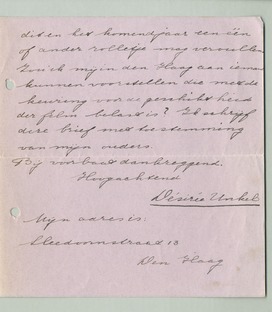 dit en het komend jaar een één
of ander rolletje mag vervullen.
Zou ik mij in den Haag aan iemand
kunnen voorstellen die met de
keuring voor de geschiktheid
der film belast is? Ik schrijf
deze brief met toestemming
van mijn ouders.
Bij voorbaat dankzeggend.
Hoogachtend
Désirée
Mijn adres is:
18
Den Haag